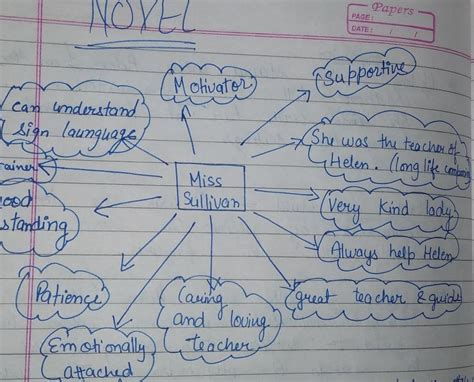 NOVEL
Papers
PAGE:
DATE: / /
Motivator
Supportive
can understand
Sign launguage
She was the teacher of
Helen. (long life
Miss
Sullivan
rainer
ood
standing
Very Kind lady
Always help Helen
Patience
Caring
and loving
teacher
great teacher & guide
Emotionally
attached